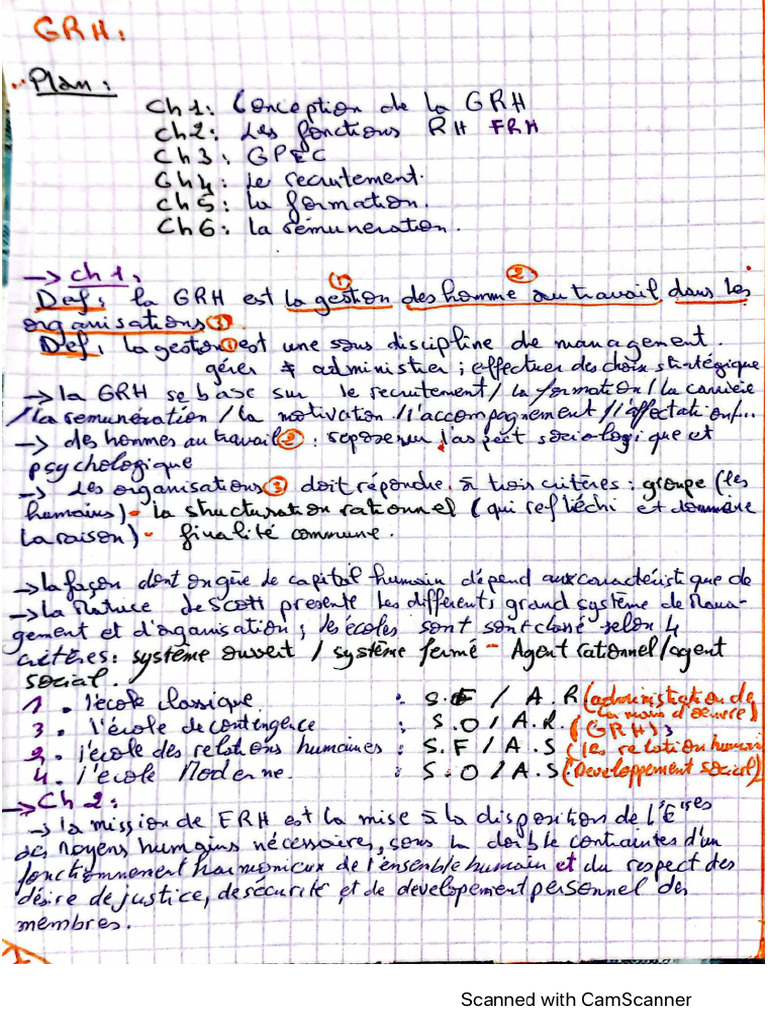 GRH:
Plan:
Ch1: Conception de la GRH
Ch2: Les fonctions RH FRH
Ch3: GPEC
Ch4: Le recrutement.
Ch5: La formation.
Ch6: La rémuneration.
→ ch1:
① ②
Def: la GRH est la gestion des homme au travail dans les
organisations ③
Def: La gestion ① est une sous discipline de management.
gérer ≠ administrer ; effectuer des choix stratégique
→ la GRH se base sur le recrutement / la formation / la carrière
/ la remunération / la motivation / l'accompagnement / l'affectation /...
→ des hommes au travail ② : repose sur l'aspect sociologique et
psychologique
→ Les organisations ③ doit répondre à trois critères : groupe (les
humains) - la structuration rationnel (qui refléchi et
la raison) - finalité commune.
→ la façon dont on gère le capital humain dépend aux caractéristique de
→ La Matrice de Scott presente les différents grand système de Mana-
gement et d'organisation ; les écoles sont sont classé selon 4
critères : système ouvert / système fermé - Agent rationnel / agent
social.
1. l'ecole classique : S.F / A.R (administration de
la main d'oeuvre)
3. l'école de contingence : S.O / A.R. (GRH) 3
2. l'école des relations humaines : S.F / A.S (les relation humain
4. l'école Moderne. : S.O / A.S (Developpement social)
→ Ch2:
→ la mission de FRH est la mise à la disposition de l'E/ses
des Moyens humains nécessaires, sous la double contraintes d'un
fonctionnement harmonieux de l'ensemble humain et du respect des
désire de justice, de sécurité et de developement personnel des
membres.
Scanned with CamScanner